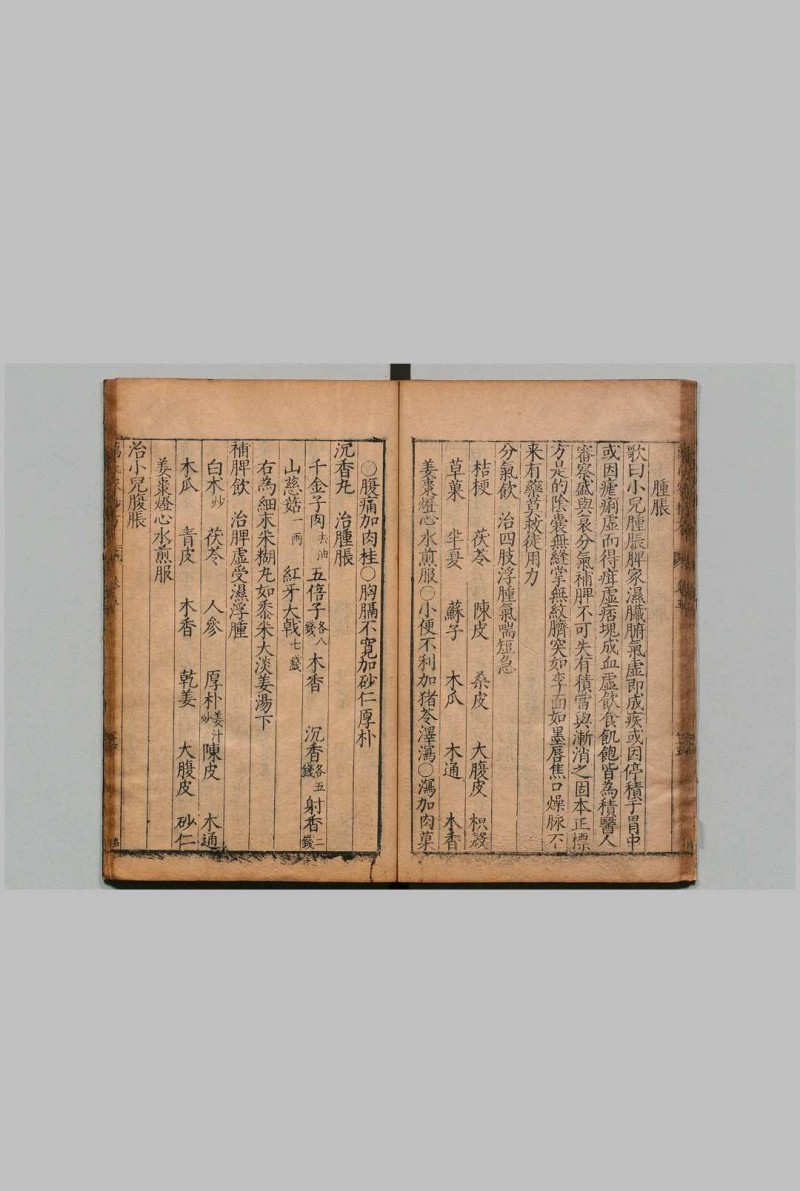 腫脹
歌曰小兒腫脹脾家濕臟腑氣虛即成疾或因停積于胃中
或因瘧痢虛而得疳虛痞塊成血虛飲食飢飽皆為積醫人
審察盛與衰分氣補脾不可失有積當與漸消之固本正標
方是的陰囊無縫掌無紋臍突如李面如墨唇焦口燥脉不
来有藥莫救徒用力
分氣飲 治四肢浮腫氣喘短急
桔梗 茯苓 陳皮 桑皮 大腹皮 枳殼
草菓 半夏 蘇子 木瓜 木通 木香
姜棗燈心水煎服○小便不利加猪苓澤瀉○瀉加肉菓
○腹痛加肉桂○胸膈不寬加砂仁厚朴
沉香丸 治腫脹
千金子肉去油 五倍子各八錢 木香 沉香各五錢 射香二錢
山慈菇一兩 紅牙大戟七錢
右為細末米糊丸如黍米大淡姜湯下
補脾飲 治脾虛受濕浮腫
白朮炒 茯苓 人參 厚朴姜汁炒 陳皮 木通
木瓜 青皮 木香 乾姜 大腹皮 砂仁
姜棗燈心水煎服
治小兒腹脹